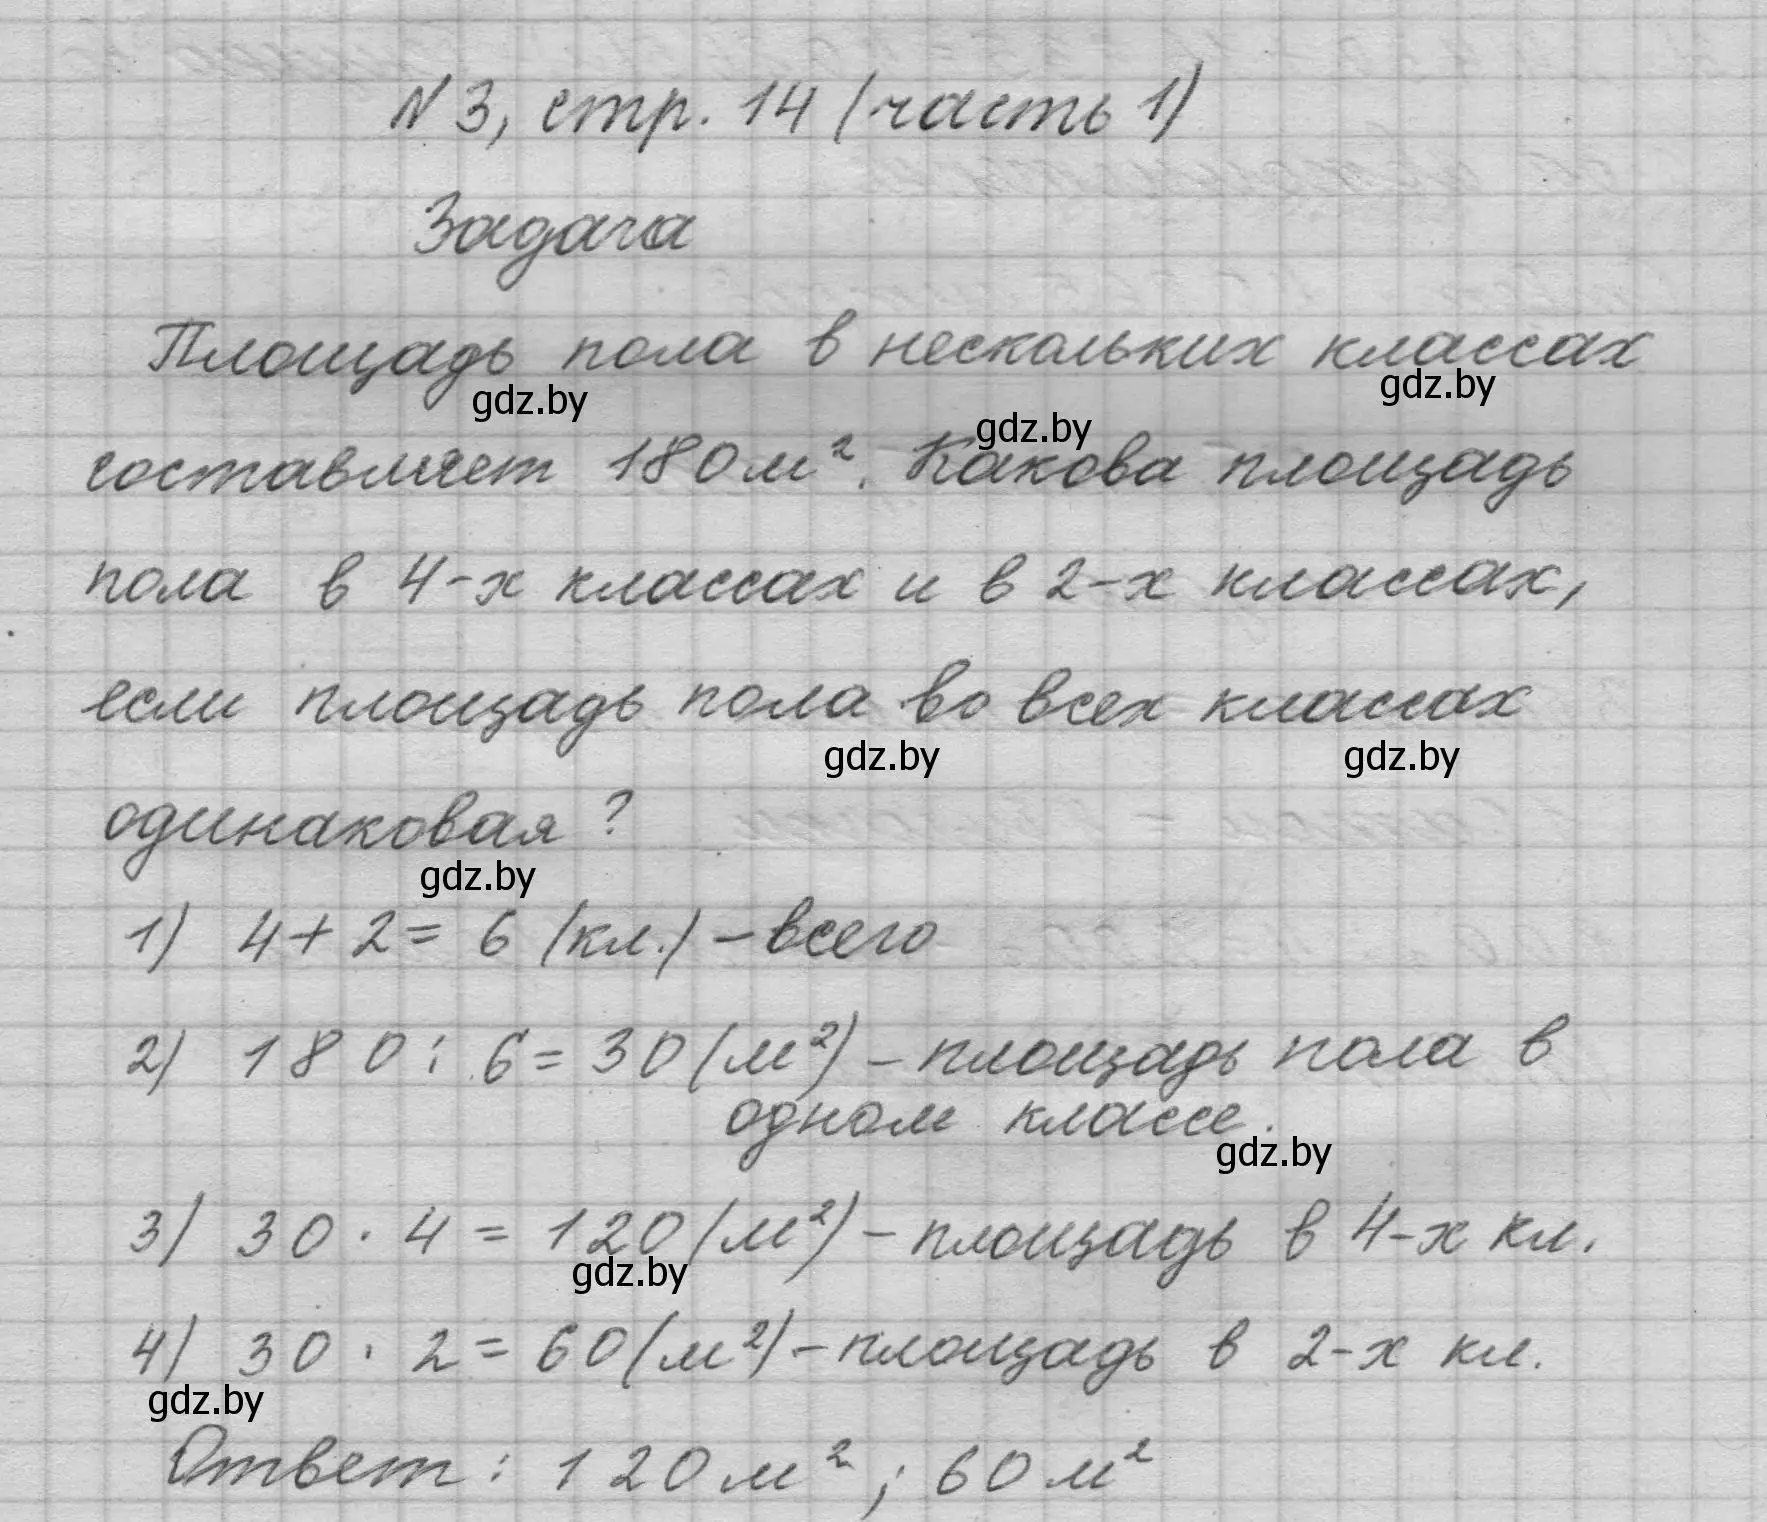 N 3, стр. 14 (часть 1)
Задача
Площадь пола в нескольких классах
gdz.by
gdz.by
gdz.by
составляет 180 м². Какова площадь
пола в 4-х классах и в 2-х классах,
если площадь пола во всех классах
gdz.by
gdz.by
одинаковая?
gdz.by
1) 4 + 2 = 6 (кл.) – всего
2) 180 : 6 = 30 (м²) – площадь пола в
одном классе.
gdz.by
3) 30 · 4 = 120 (м²) – площадь в 4-х кл.
gdz.by
4) 30 · 2 = 60 (м²) – площадь в 2-х кл.
gdz.by
Ответ: 120 м²; 60 м²